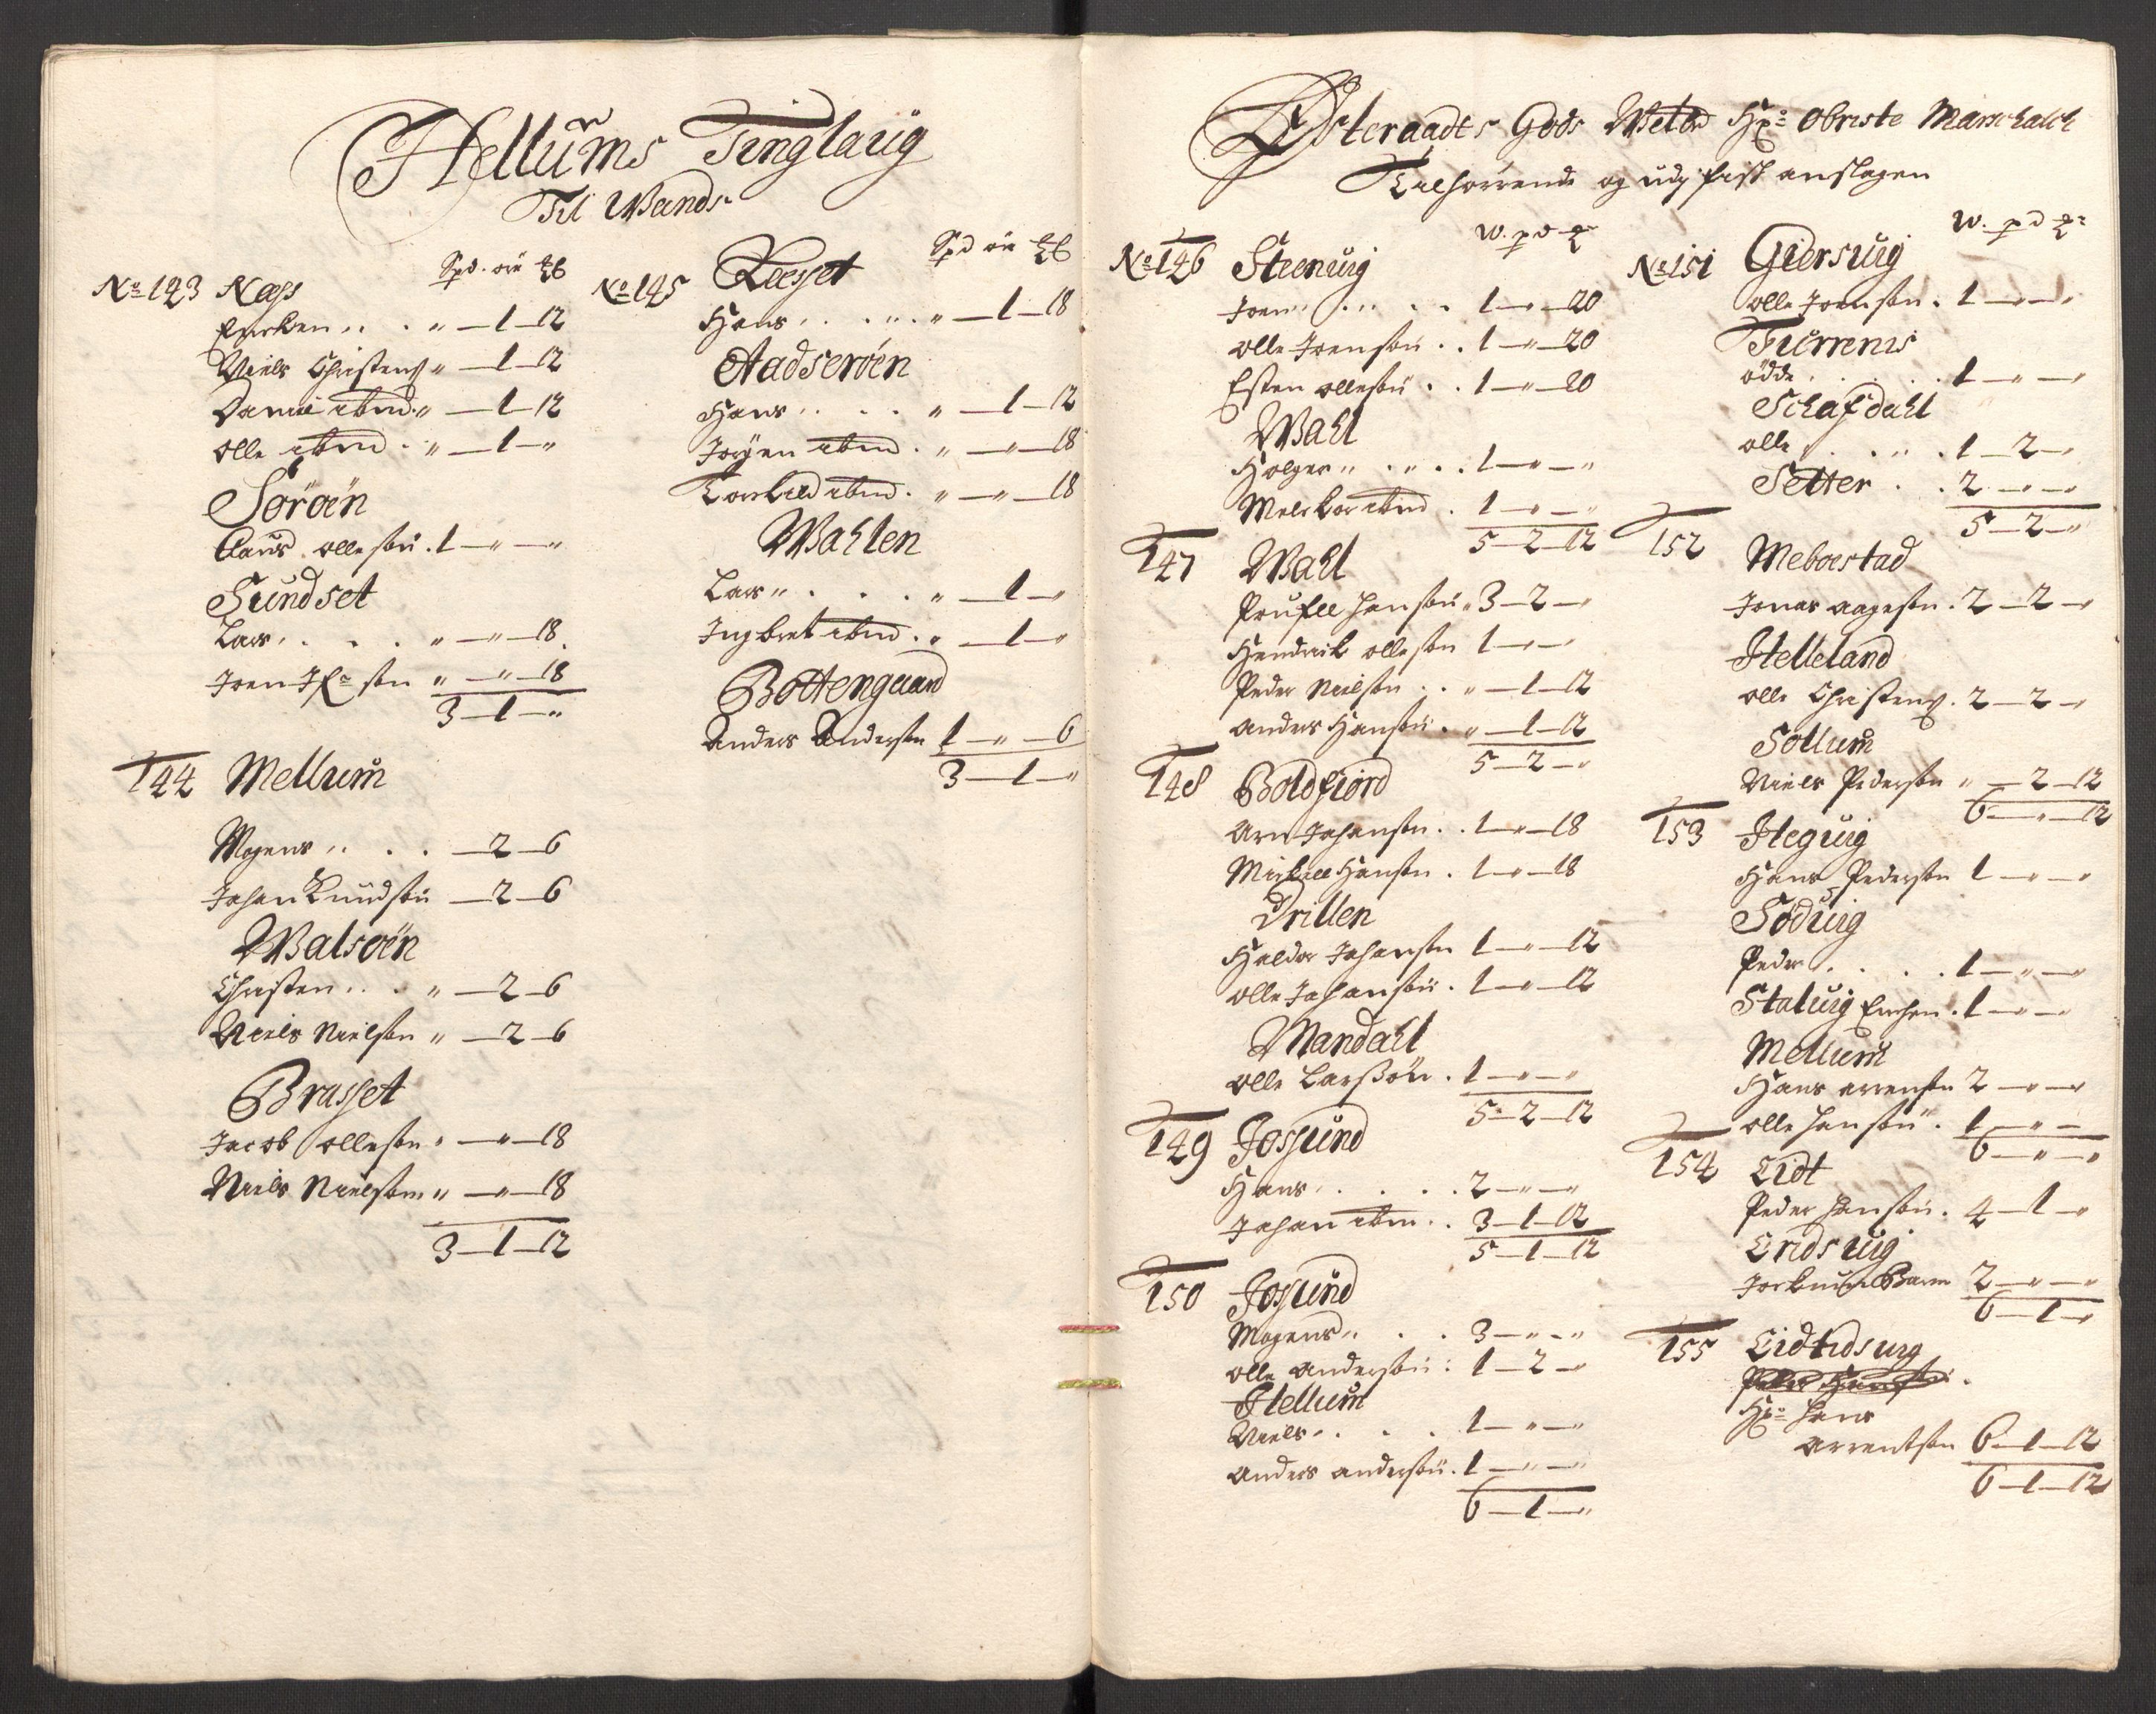 Hellums Tinglaug
Til Wands
Spd. øre
No 143 Næss
Encken . . . " — 1 — 12
Niels Christens " — 1 — 12
Daniel ibm " — 1 — 12
Olle ibmd . " — 1 — "
Söröen
Claus ollesön . 1 — " — "
Sundset
Lars . . . . " — " — 18
Joen søn " — " — 18
3 — 1 — "
144 Mellum
Mogens . . . — 2 — 6
Johan Knudsön — 2 — 6
Walsöen
Christen . . . " — 2 — 6
Niels Nielsøn " — 2 — 6
Brasset
Jacob ollesøn " — " — 18
Niels Nielsøn " — " — 18
3 — 1 — 12
Spd øre
No 145 Reesset
Hans . . . . " — 1 — 18
Aadseröen
Hans . . . . " — 1 — 12
Jorgen ibmd . " — " — 18
Torkild ibmd . " — " — 18
Wahlen
Lars . . . . " — 1 — "
Ingbret ibmd . " — 1 — "
Bottengaard
Anders Andersøn 1 — " — 6
3 — 1 — "
Østeraadts Gods Hr Obriste Marschalck
Tilhörrende og udj fisk anslagen
W. pd
No 146 Steenuig
Joen . . . . 1 — " — 20
Olle Joensøn . . 1 — " — 20
Esten ollesøn . . 1 — " — 20
Wahl
Holger . . . . 1 — " — "
Melchor ibmd . 1 — " — "
5 — 2 — 12
147 Wahl
Poufell hansøn " 3 — 2 — "
Hendrick ollesøn 1 — " — "
Peder Nielsøn . . " — 1 — 12
Anders Hansøn . " — 1 — 12
5 — 2 — "
148 Boldfiord
Arn Johansøn . . 1 — " — 18
Michell Hansøn . 1 — " — 18
Drillen
Haldor Johansøn 1 — " — 12
Olle Johansøn . 1 — " — 12
Mandahl
Olle Larssøn . 1 — " — "
5 — 2 — 12
149 Jossund
Hans . . . . 2 — " — "
Johan ibm . . 3 — 1 — 12
5 — 1 — 12
150 Jossund
Mogens . . . 3 — " — "
Olle Andersøn : 1 — 2 — "
Hellum
Niels . . . . 1 — " — "
Anders andersøn . 1 — " — "
6 — 1 — "
W. pd
No 151 Giersuig
Olle Joensøn . 1 — " — "
Turrenis
ödde . . . . 1 — " — "
Schafdahl
Olle . . . . 1 — 2 — "
Setter . . 2 — " — "
5 — 2 — "
152 Meboestad
Jonas aagesøn . 2 — 2 — "
Helleland
Olle Christens . 2 — 2 — "
Sollum
Niels Pedersøn " — 2 — 12
6 — " — 12
153 Heguig
Hans Pedersøn 1 — " — "
Söduig
Peder . . . . 1 — " — "
Staluig Enchen . 1 — " — "
Mellum
Hans arrensøn 2 — " — "
Olle hansøn . 1 — " — "
6 — " — "
154 Eidt
Peder hansøn . 4 — 1 — "
Eidsuig
2 — " — "
6 — 1 — "
155 Eidtidsuig
Hr Hans
Arrentsøn 6 — 1 — 12
6 — 1 — 12